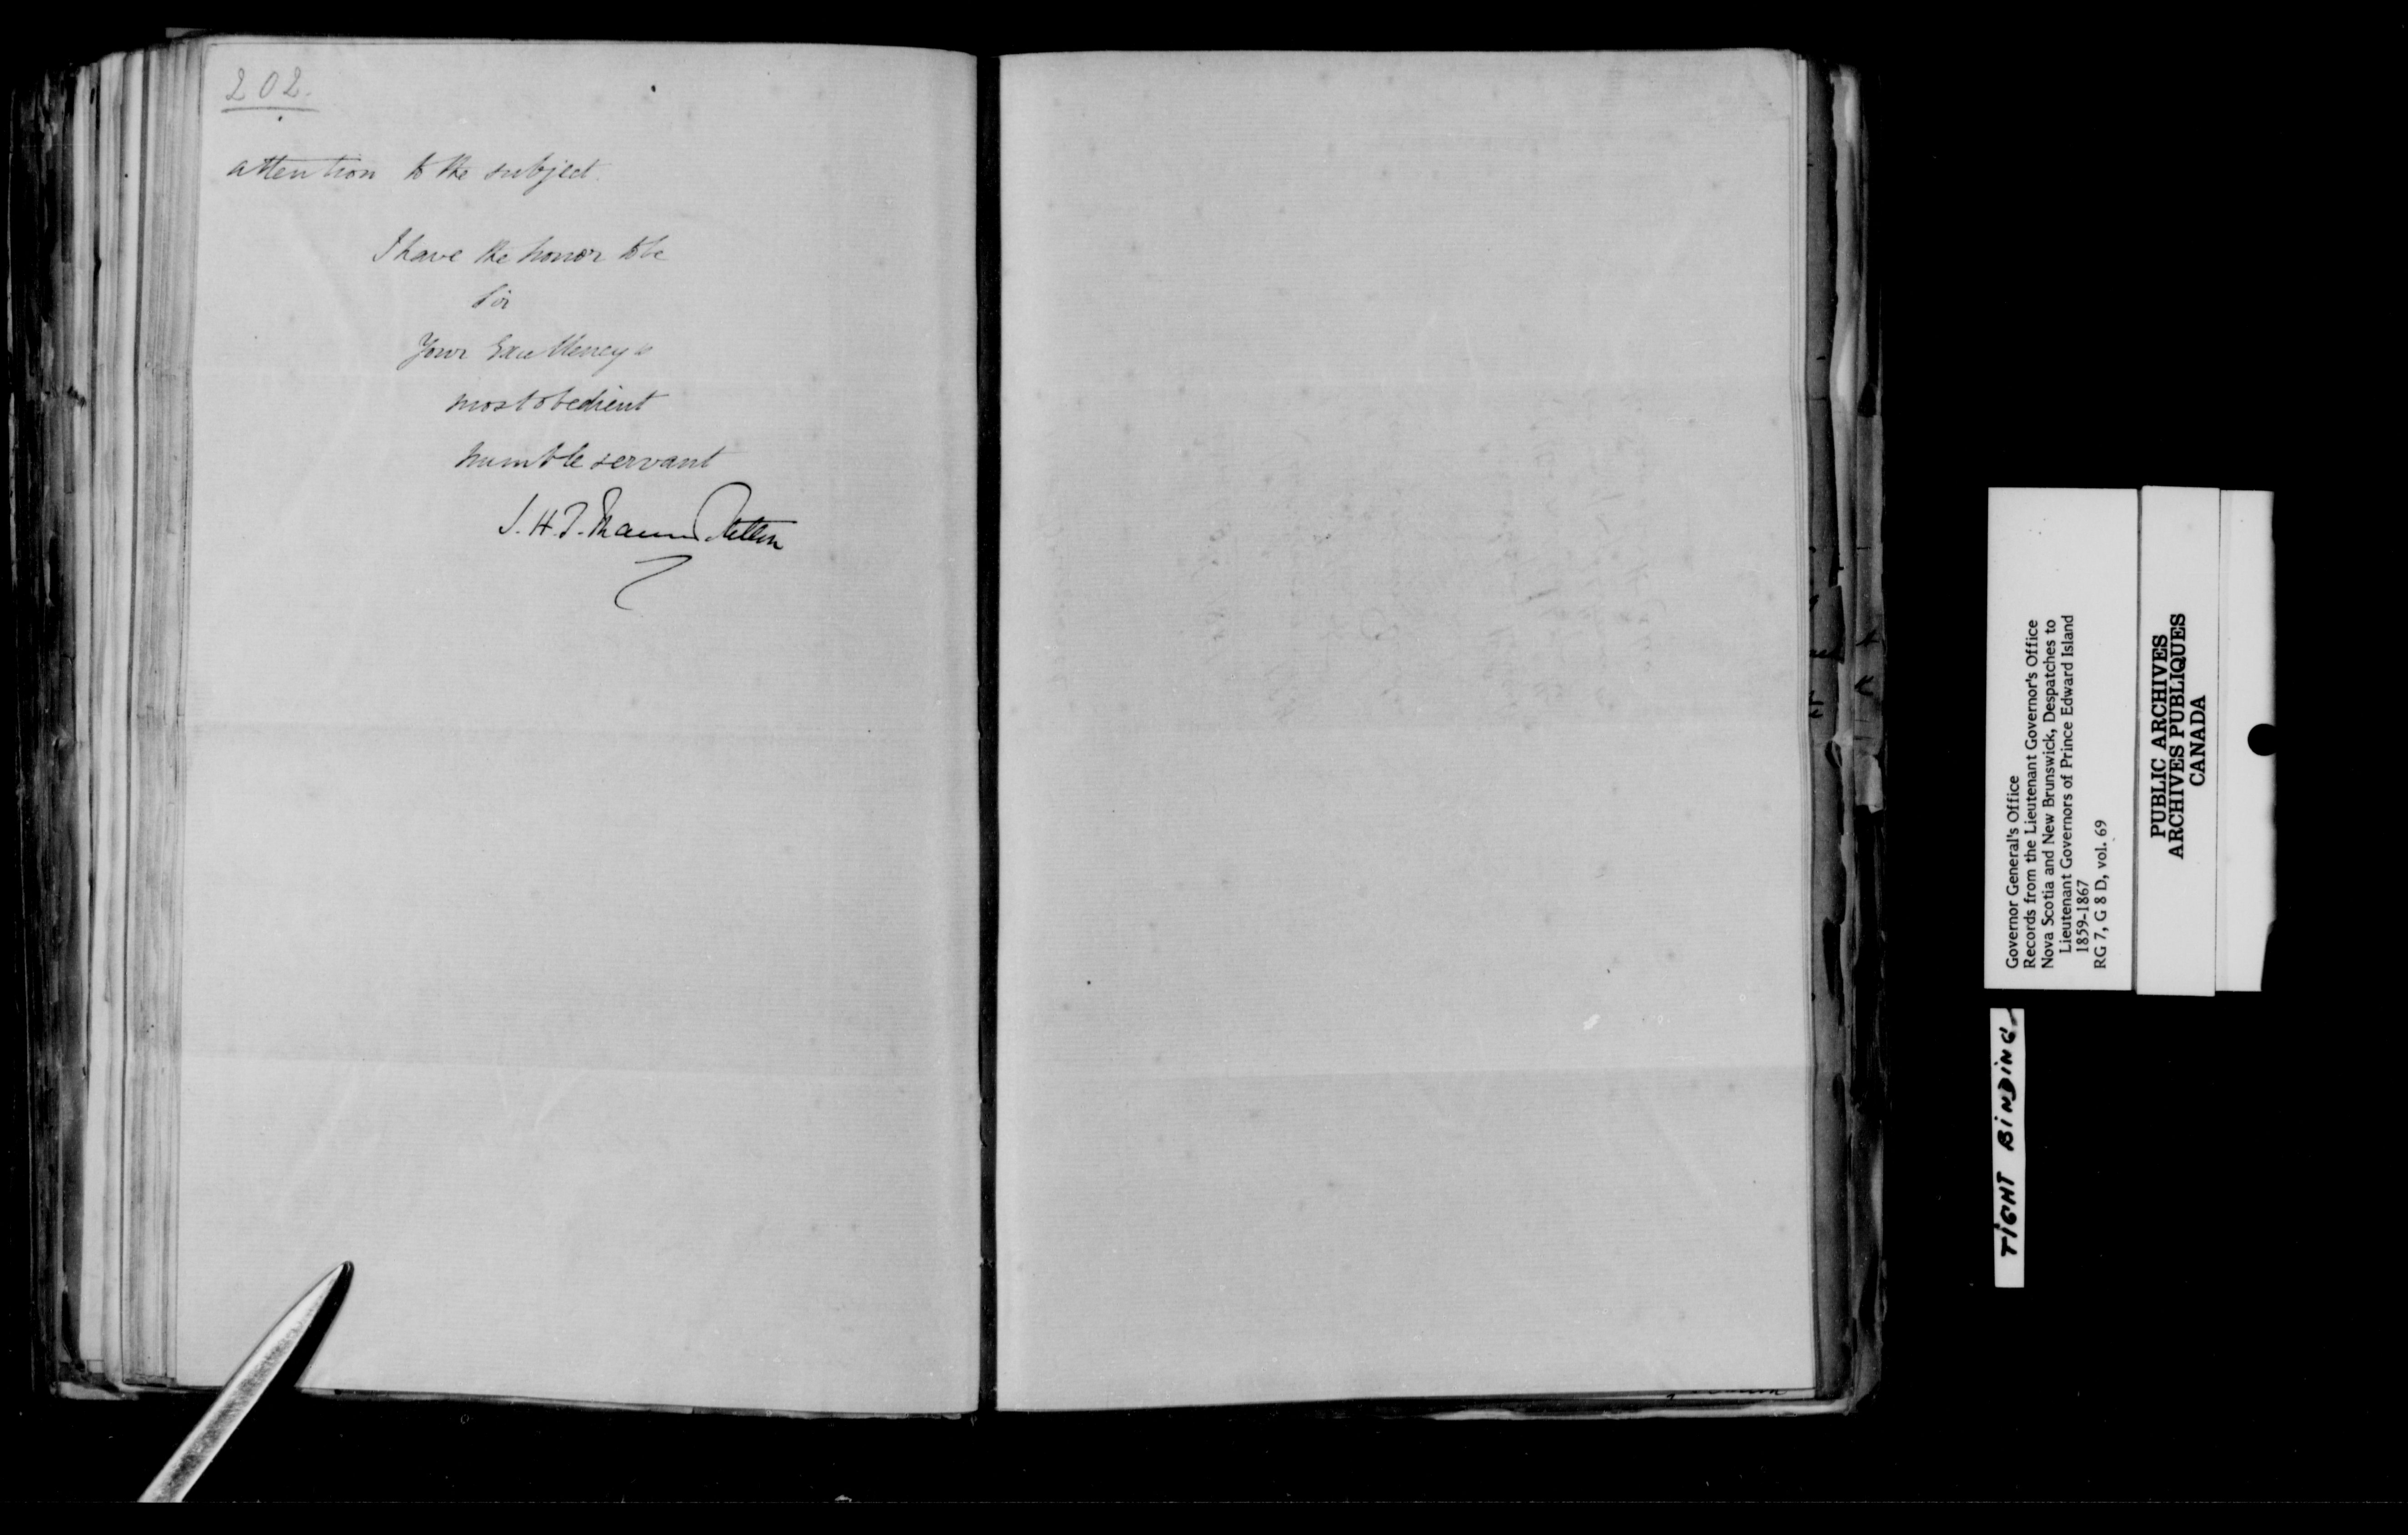 202.
attention to the subject.
I have the honor to be
Sir
Your Excellency's
most obedient
humble servant
J. H. T. Manners Sutton
Governor General's Office
Records from the Lieutenant Governor's Office
Nova Scotia and New Brunswick, Despatches to
Lieutenant Governors of Prince Edward Island
1859-1867
RG 7, G 8 D, vol. 69
PUBLIC ARCHIVES
ARCHIVES PUBLIQUES
CANADA
TIGHT BINDING